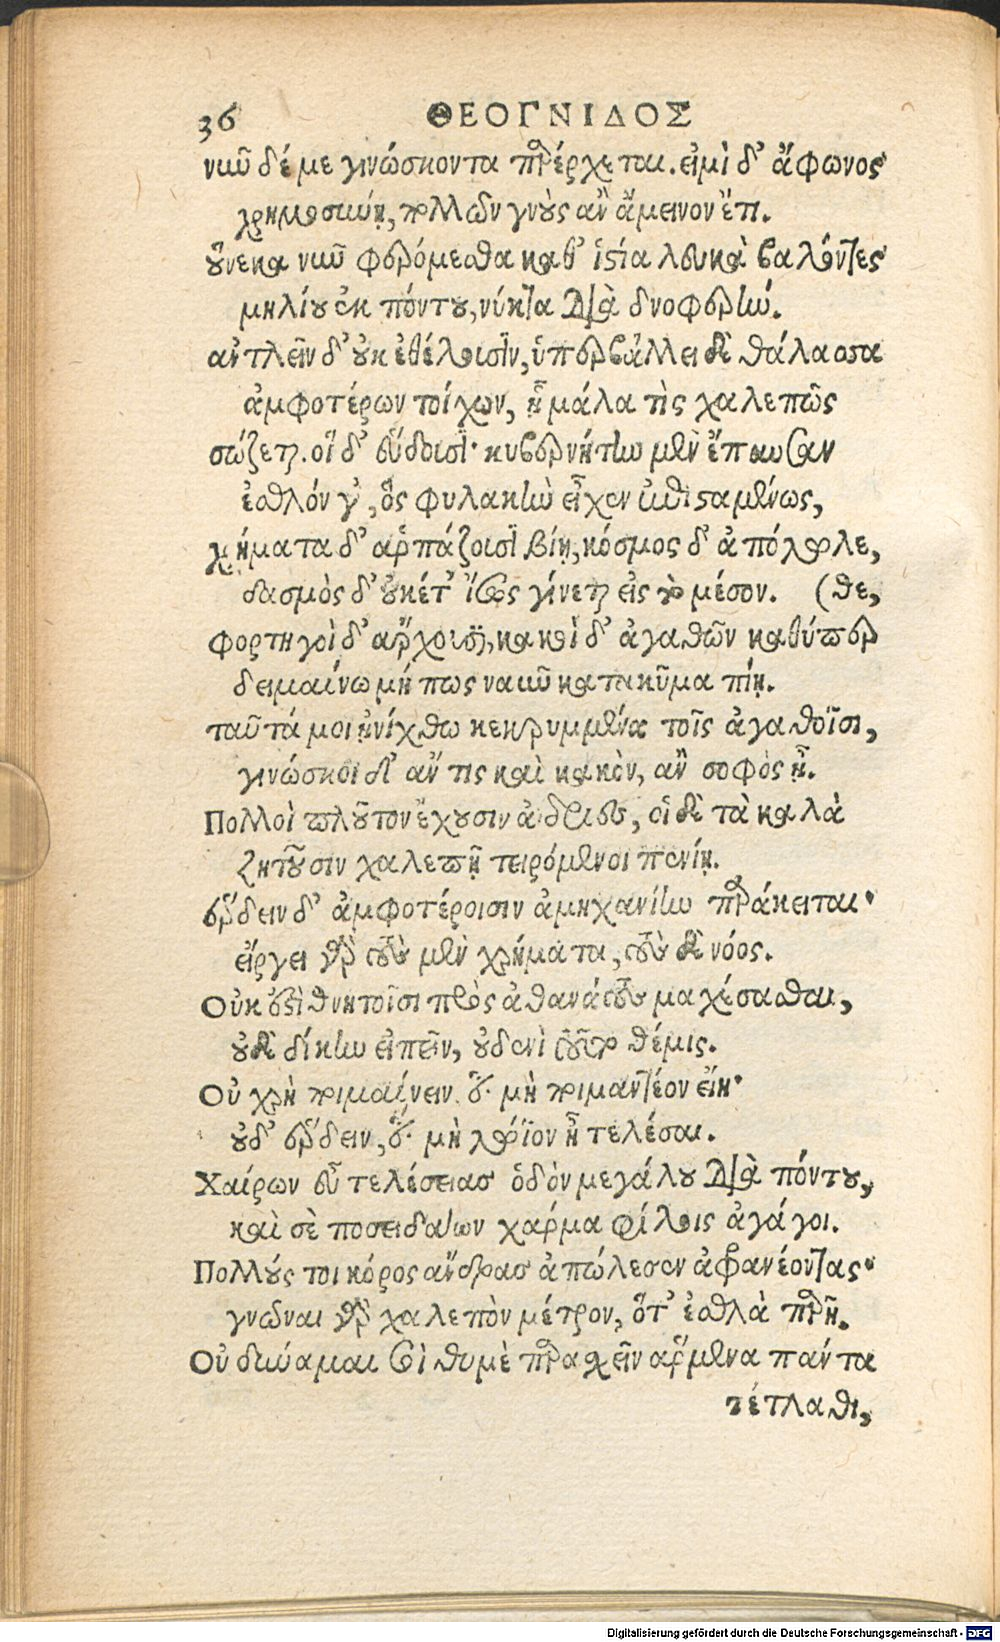 36 ΘΕΟΓΝΙΔΟΣ
νῦν δέ με γινώσκοντα παρέρχεται. εἰμὶ δ' ἄφωνος
χρημοσύνῃ, πολλῶν γνοὺς ἂν ἄμεινον ἔτι.
οὕνεκα νῦν φερόμεσθα καθ' ἱστία λευκὰ βαλόντες
μηλίου ἐκ πόντου, νύκτα διὰ δνοφερήν.
ἀντλεῖν δ' οὐκ ἐθέλοισιν, ὑπερβάλλει δὲ θάλασσα
ἀμφοτέρων τοίχων, ἦ μάλα τὶς χαλεπῶς
σώζεται. οἵ δ' εὕδοισι· κυβερνήτην μὲν ἔπαυσαν
ἐσθλόν γ', ὃς φυλακὴν εἶχεν ἐπισταμένως,
χρήματα δ' ἁρπάζοισι βίῃ, κόσμος δ' ἀπόλωλε,
δασμὸς δ' οὐκέτ' ἴσος γίνεται εἰς τὸ μέσον. (θε,
φορτηγοὶ δ' ἄρχουσι, κακοὶ δ' ἀγαθῶν καθύπερ
δειμαίνω μή πως ναῦν κατὰ κῦμα πίῃ.
ταῦτά μοι ᾐνίχθω κεκρυμμένα τοῖς ἀγαθοῖσι,
γινώσκοι δ' ἄν τις καὶ κακὸν, ἂν σοφὸς ᾖ.
Πολλοὶ πλοῦτον ἔχουσιν ἀΐδριες, οἱ δὲ τὰ καλὰ
ζητοῦσιν χαλεπῇ τειρόμενοι πενίῃ.
ἕρδειν δ' ἀμφοτέροισιν ἀμηχανίην παράκειται·
εἴργει γὰρ τοὺς μὲν χρήματα, τοὺς δὲ νόος.
Οὐκ ἔστι θνητοῖσι πρὸς ἀθανάτους μαχέσασθαι,
οὐδὲ δίκην εἰπεῖν, οὐδενὶ τοῦτο θέμις.
Οὐ χρὴ πημαίνειν ὅ.τι μὴ πημαντέον εἴη·
οὐδ' ἕρδειν, ὅ.τι μὴ λώϊον ᾖ τελέσαι.
Χαίρων εὖ τελέσειας ὁδὸν μεγάλου διὰ πόντου,
καὶ σὲ ποσειδάων χάρμα φίλοις ἀγάγοι.
Πολλούς τοι κόρος ἄνδρας ἀπώλεσεν ἀφρανέοντας·
γνῶναι γὰρ χαλεπὸν μέτρον, ὅτ' ἐσθλὰ παρῇ.
Οὐ δύναμαι σοὶ θυμὲ παρασχεῖν ἄρμενα πάντα
τέτλαθι,
Digitalisierung gefördert durch die Deutsche Forschungsgemeinschaft - DFG